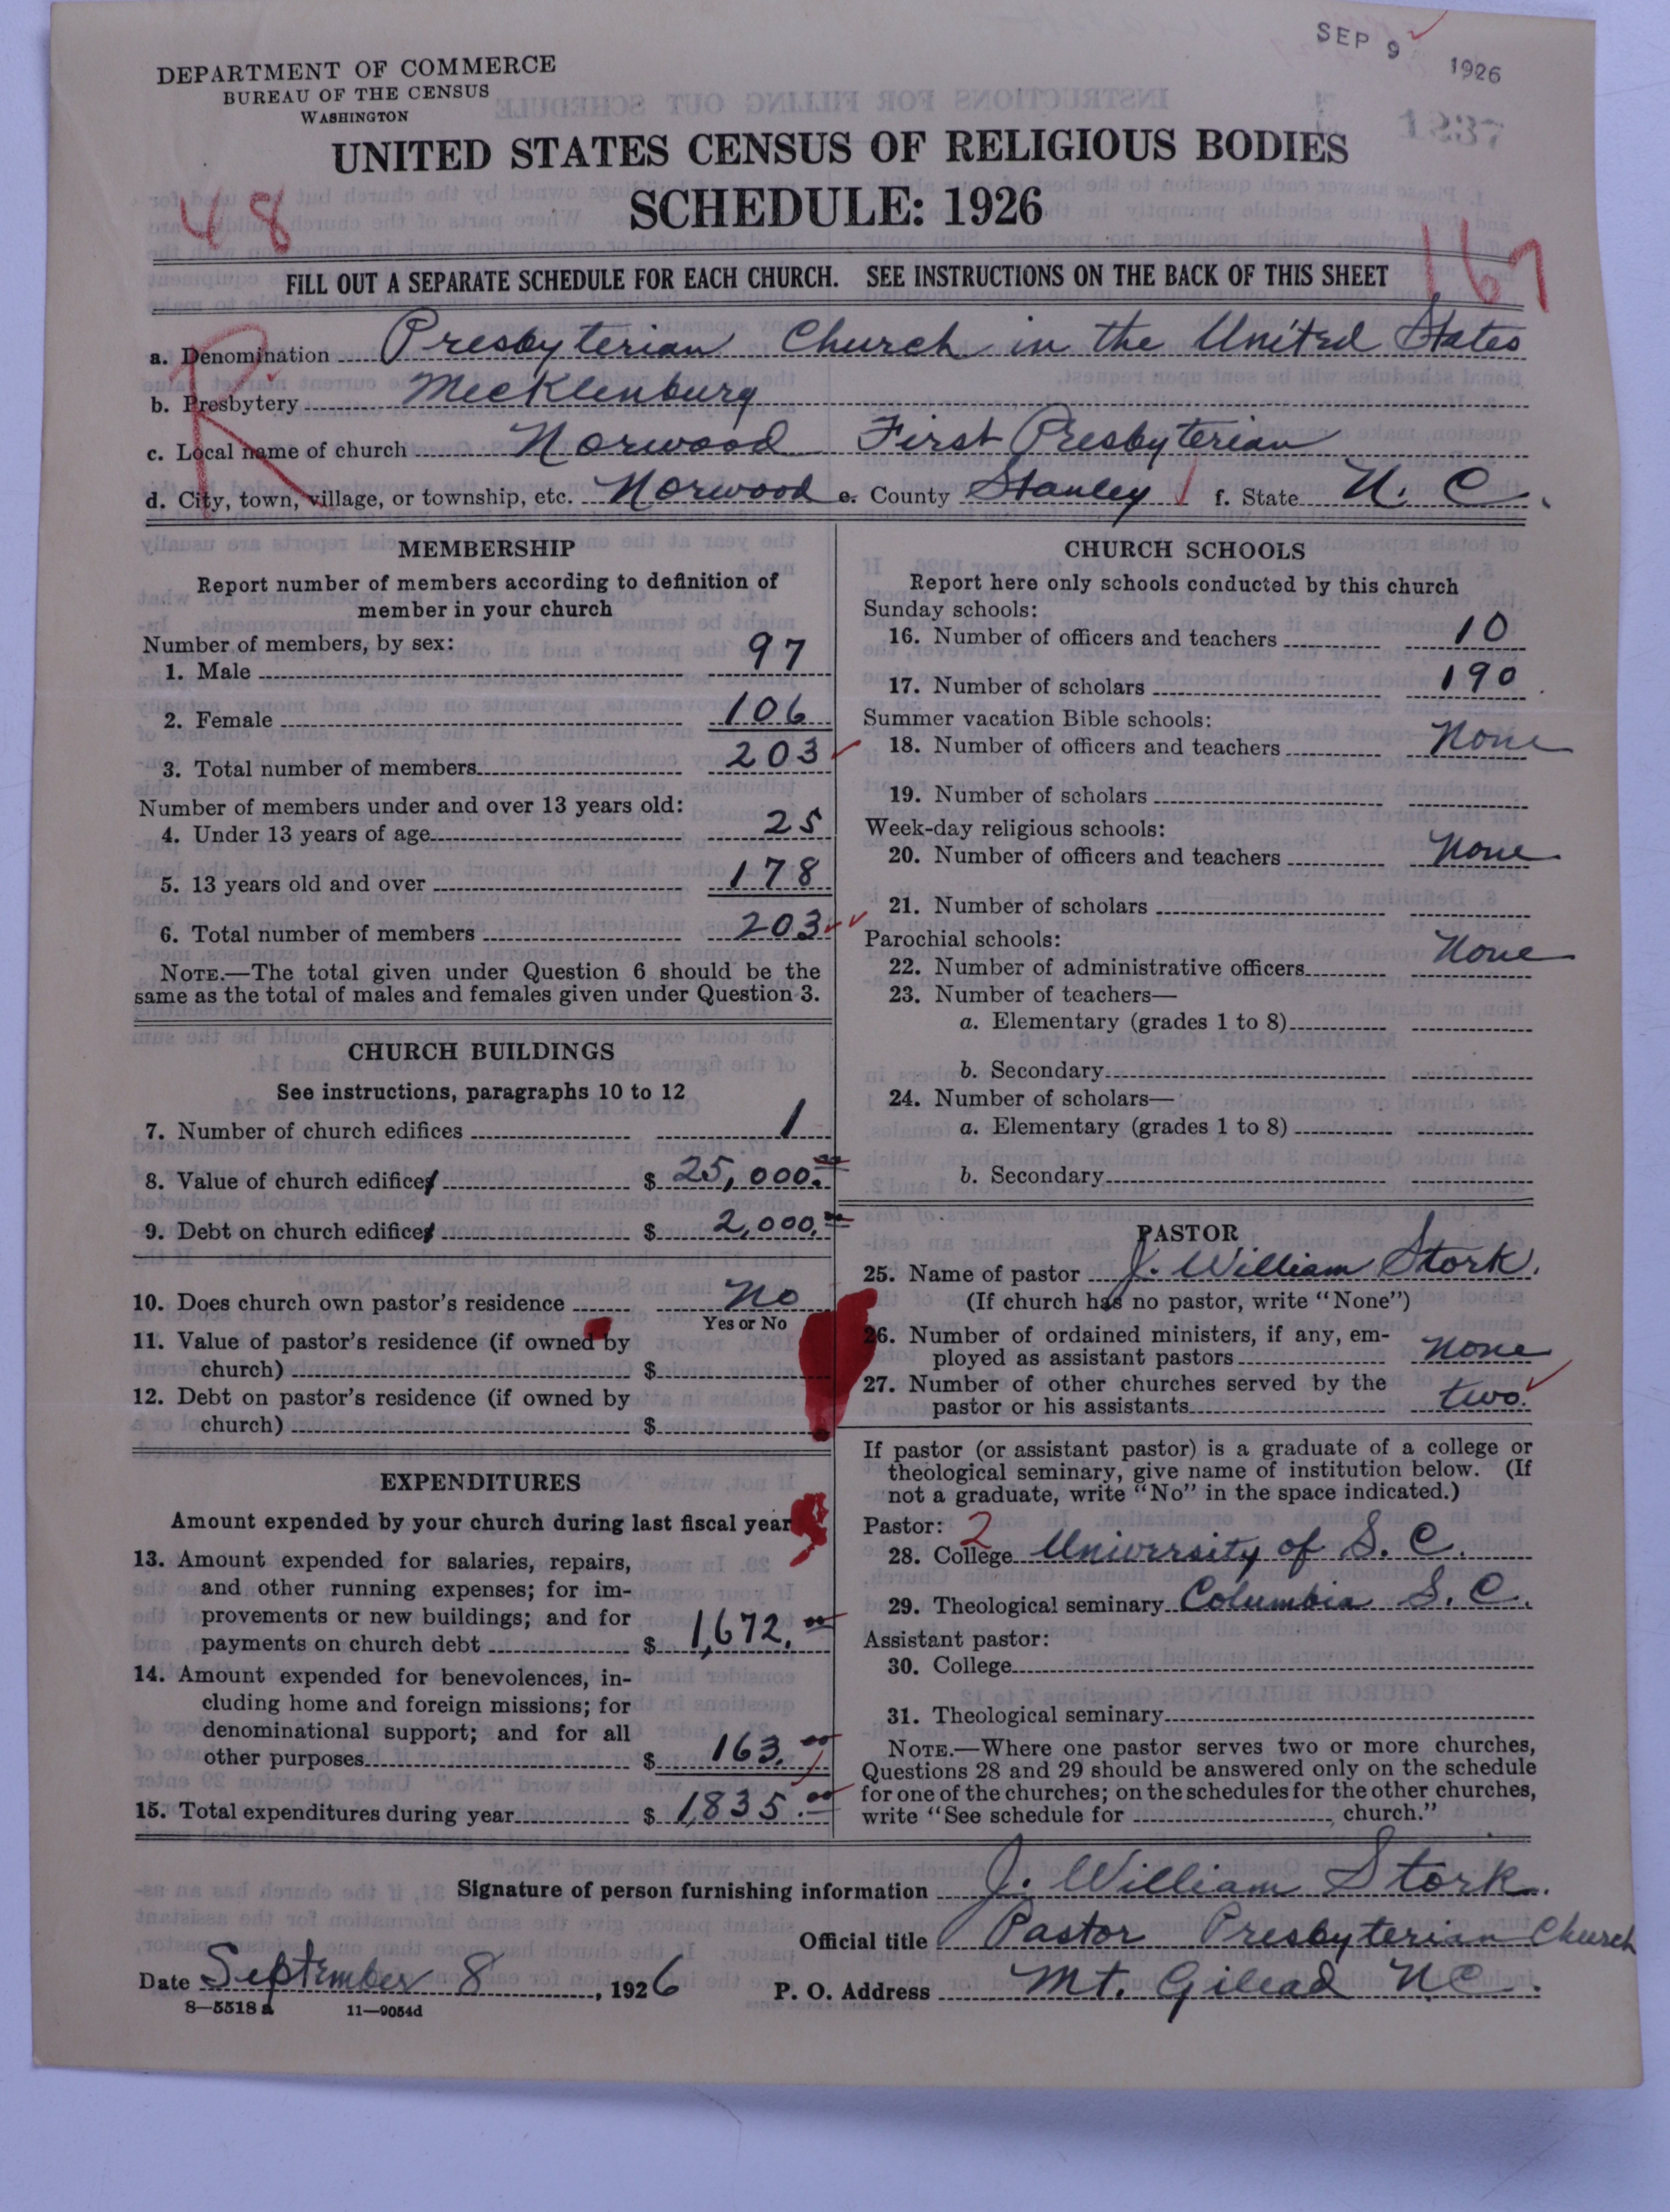 SEP 9 1926
DEPARTMENT OF COMMERCE
BUREAU OF THE CENSUS
WASHINGTON
1237
UNITED STATES CENSUS OF RELIGIOUS BODIES
SCHEDULE: 1926
48
167
FILL OUT A SEPARATE SCHEDULE FOR EACH CHURCH. SEE INSTRUCTIONS ON THE BACK OF THIS SHEET
R
a. Denomination Presbyterian Church in the United States
b. Presbytery Mecklenburg
c. Local name of church Norwood First Presbyterian
d. City, town, village, or township, etc. Norwood e. County Stanley f. State N. C.
MEMBERSHIP
Report number of members according to definition of
member in your church
Number of members, by sex:
1. Male 97
2. Female 106
3. Total number of members 203
Number of members under and over 13 years old:
4. Under 13 years of age 25
5. 13 years old and over 178
6. Total number of members 203
NOTE.—The total given under Question 6 should be the
same as the total of males and females given under Question 3.
CHURCH BUILDINGS
See instructions, paragraphs 10 to 12
7. Number of church edifices 1
8. Value of church edifices $ 25,000.00
9. Debt on church edifices $ 2,000.00
10. Does church own pastor's residence No
Yes or No
11. Value of pastor's residence (if owned by
church) $
12. Debt on pastor's residence (if owned by
church) $
EXPENDITURES
Amount expended by your church during last fiscal year
13. Amount expended for salaries, repairs,
and other running expenses; for im-
provements or new buildings; and for
payments on church debt $ 1,672.00
14. Amount expended for benevolences, in-
cluding home and foreign missions; for
denominational support; and for all
other purposes $ 163.00
15. Total expenditures during year $ 1,835.00
CHURCH SCHOOLS
Report here only schools conducted by this church
Sunday schools:
16. Number of officers and teachers 10
17. Number of scholars 190
Summer vacation Bible schools:
18. Number of officers and teachers None
19. Number of scholars
Week-day religious schools:
20. Number of officers and teachers None
21. Number of scholars
Parochial schools:
22. Number of administrative officers None
23. Number of teachers—
a. Elementary (grades 1 to 8)
b. Secondary
24. Number of scholars—
a. Elementary (grades 1 to 8)
b. Secondary
PASTOR
25. Name of pastor J. William Stork.
(If church has no pastor, write "None")
26. Number of ordained ministers, if any, em-
ployed as assistant pastors None
27. Number of other churches served by the
pastor or his assistants two.
If pastor (or assistant pastor) is a graduate of a college or
theological seminary, give name of institution below. (If
not a graduate, write "No" in the space indicated.)
Pastor: 2
28. College University of S. C.
29. Theological seminary Columbia S. C.
Assistant pastor:
30. College
31. Theological seminary
NOTE.—Where one pastor serves two or more churches,
Questions 28 and 29 should be answered only on the schedule
for one of the churches; on the schedules for the other churches,
write "See schedule for , church."
Signature of person furnishing information J. William Stork.
Official title Pastor Presbyterian Church
Date September 8, 1926 P. O. Address Mt. Gilead N.C.
8—5518 a 11—9054d